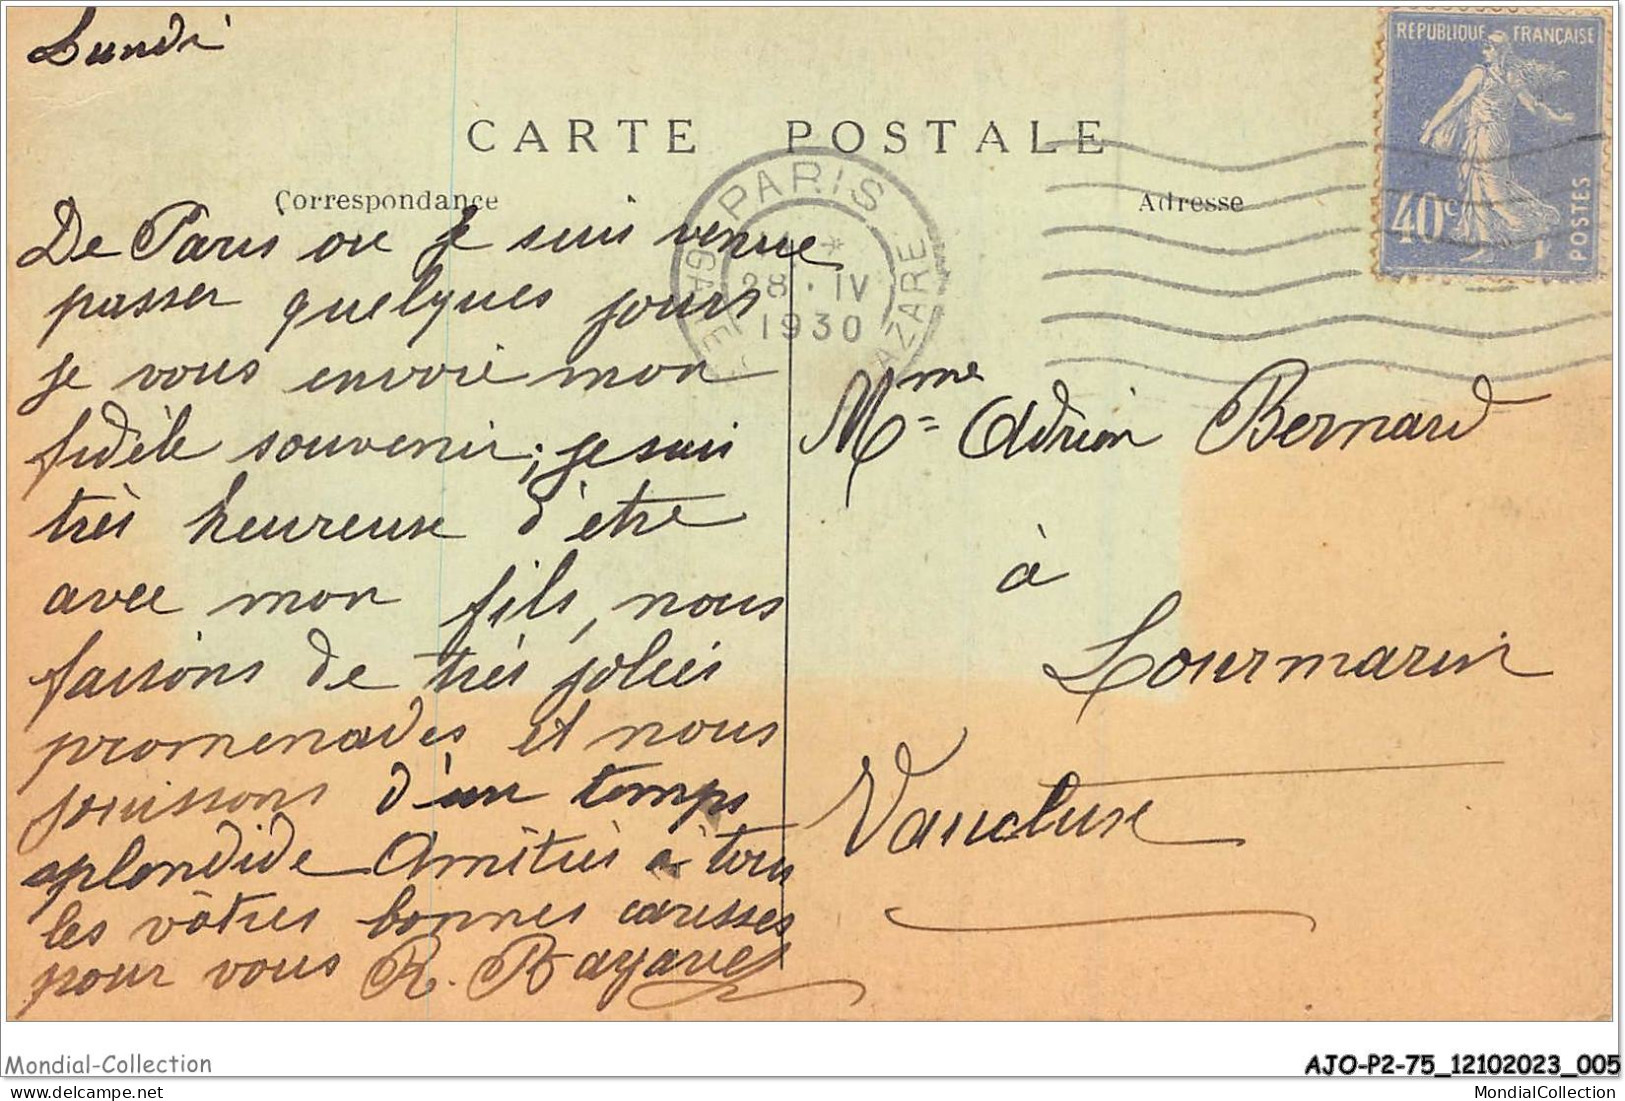 Lundi
REPUBLIQUE FRANÇAISE
40c
POSTES
CARTE POSTALE
Correspondance
Adresse
PARIS
GARE
LAZARE
28 · IV
1930
De Paris ou je suis venue
passer quelques jours
je vous envoie mon
fidèle souvenir; je suis
très heureuse d'être
avec mon fils, nous
faisons de très jolies
promenades et nous
jouissons d'un temps
splendide Amitiés à tous
les vôtres bonnes caresses
pour vous R.
Mme Adrien Bernard
à
Lourmarin
Vaucluse
Mondial-Collection
AJO-P2-75_12102023_005
MondialCollection